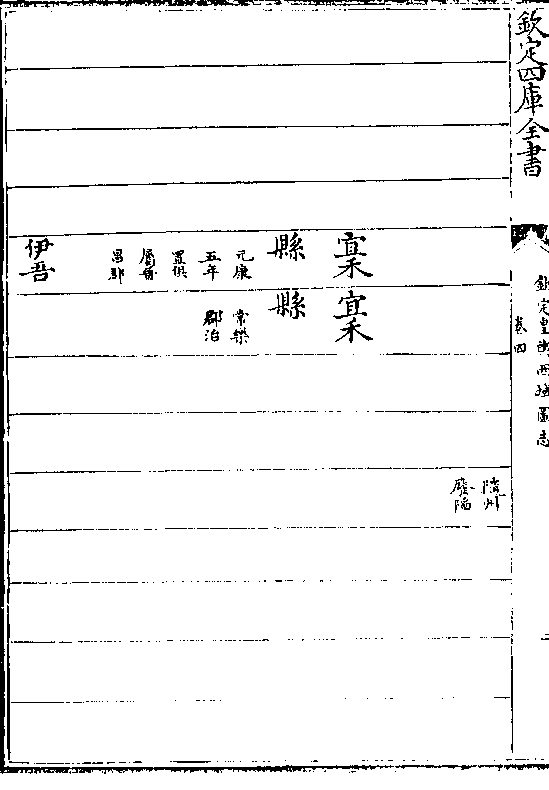 欽定四庫全書
欽定皇輿西域圖志
卷四
隨州
廢隔
宜禾
縣
元康
五年
置俱
屬晉
昌郡
伊吾
宜禾
縣
常樂
郡治